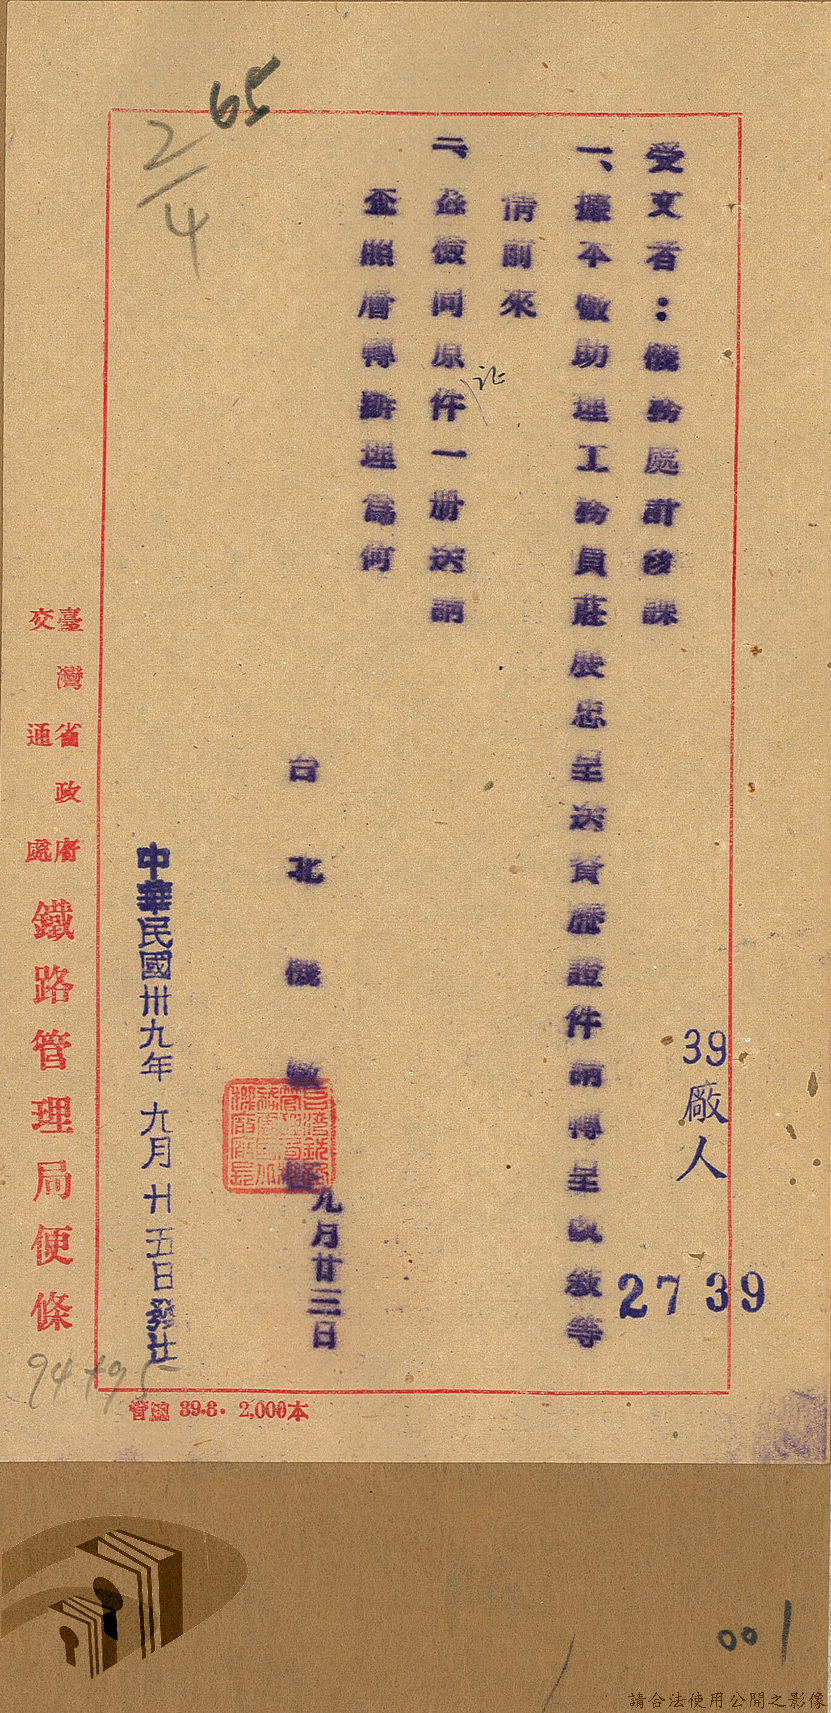 65
2/4
39
廠人
2739
受文者：機務處計核課
一、據本廠助理工務員莊慶忠呈送資歷證件請轉呈敘級等
情前來
二、茲檢同原件一册送請
証
查照層轉辦理為何
台北機廠
九月廿三日
中華民國卅九年九月廿五日發出
臺灣省政府
交通處
鐵路管理局便條
94+95
管總 39.8. 2,000本
001
請合法使用公開之影像